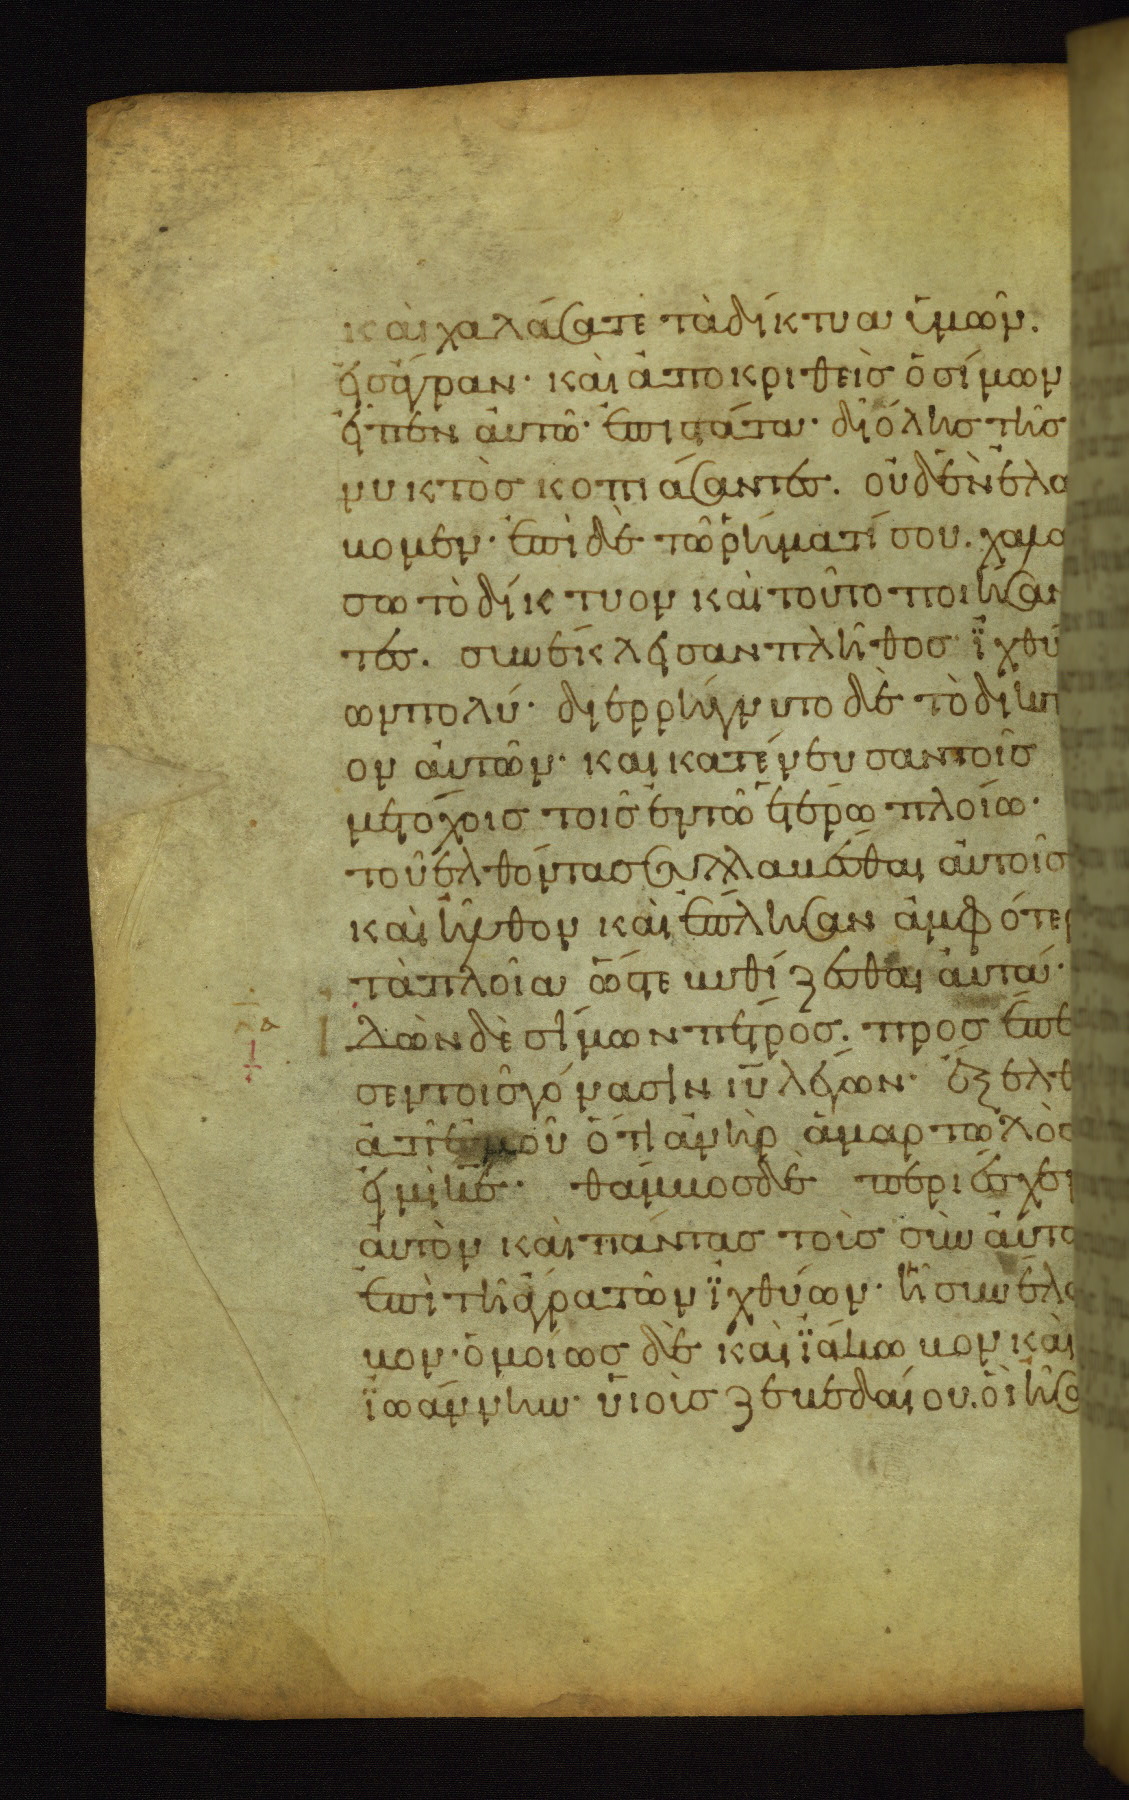 καὶ χαλάσατε τὰ δίκτυα ὑμῶν.
εἰς ἄγραν· καὶ ἀποκριθεὶς ὁ σίμων
εἶπεν αὐτῶ· ἐπιστάτα· δι όλης τῆς
νυκτὸς κοπιάσαντες. οὐδὲν ἐλα
βομεν· ἐπὶ δὲ τῶ ῥήματί σου. χαλα
σω τὸ δίκτυον καὶ τοῦτο ποιήσαν
τες. συνέκλεισαν πλῆθος ἰχθύ
ων πολύ· διερρήγνυτο δὲ τὸ δίκτυ
ον αὐτῶν· και κατένευσαν τοῖς
μετόχοις τοῖς ἐν τῶ ἑτέρω πλοίω·
τοῦ ἐλθόντας συλλαβέσθαι αὐτοῖς
καὶ ἦλθον καὶ ἔπλησαν ἀμφότερ
τὰ πλοῖα ὥστε βυθίζεσθαι αὐτά·
Ἰδὼν δὲ σίμων πέτρος. προσέπε
σεν τοῖς γόνασιν ιυ λέγων· ἔξελθ
ἀπ ἐμοῦ ὅτι ἀνὴρ ἁμαρτωλὸς
εἰμὶ κε· θάμβος δὲ περιέσχεν
αὐτὸν καὶ πάντας τοὶς σὺν αὐτῶ
ἐπὶ τῆ ἄγρα τῶν ἰχθύων· ἧ συνέλα
βον· ὁμοίως δὲ καὶ ἰάκωβον καὶ
ἰωάννην· υἱοὶς ζεβεδαίου. οἳ ἦσα